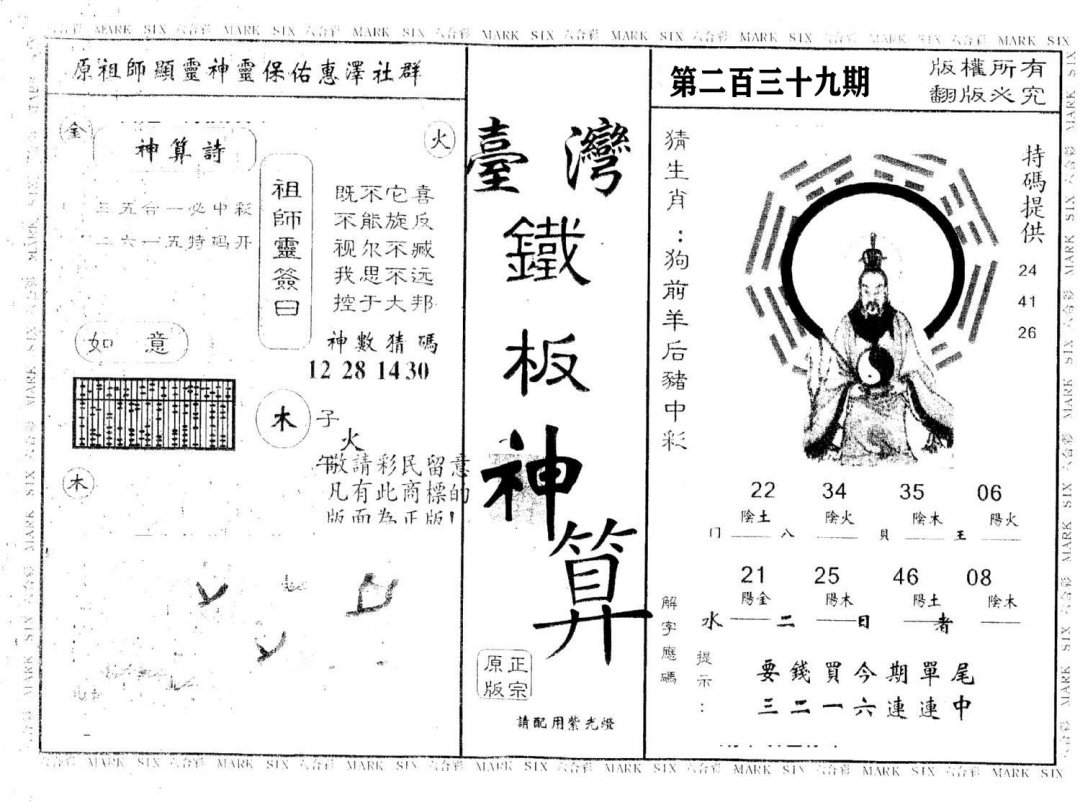 六合彩 MARK SIX 六合彩 MARK SIX 六合彩 MARK SIX 六合彩 MARK SIX 六合彩 MARK SIX
原祖師顯靈神靈保佑惠澤社群
金
神算詩
火
三五合一必中彩
二六一五特码开
祖師靈簽曰
既不它喜
不能旋反
视尔不臧
我思不远
控于大邦
神數猜碼
12 28 14 30
如意
木
子
火
午
敬請彩民留意
凡有此商標的
版面為正版!
木
臺灣
鐵
板
神
算
正宗
原版
請配用紫光燈
第二百三十九期
版權所有
翻版必究
猜生肖:狗前羊后豬中彩
持碼提供
24
41
26
22 34 35 06
陰土 陰火 陰木 陽火
门 八 貝 王
21 25 46 08
陽金 陽木 陽土 陰木
水 二 日 者
解字應碼
提示:
要錢買今期單尾
三二一六連連中
MARK SIX 六合彩 MARK SIX 六合彩 MARK SIX 六合彩 MARK SIX